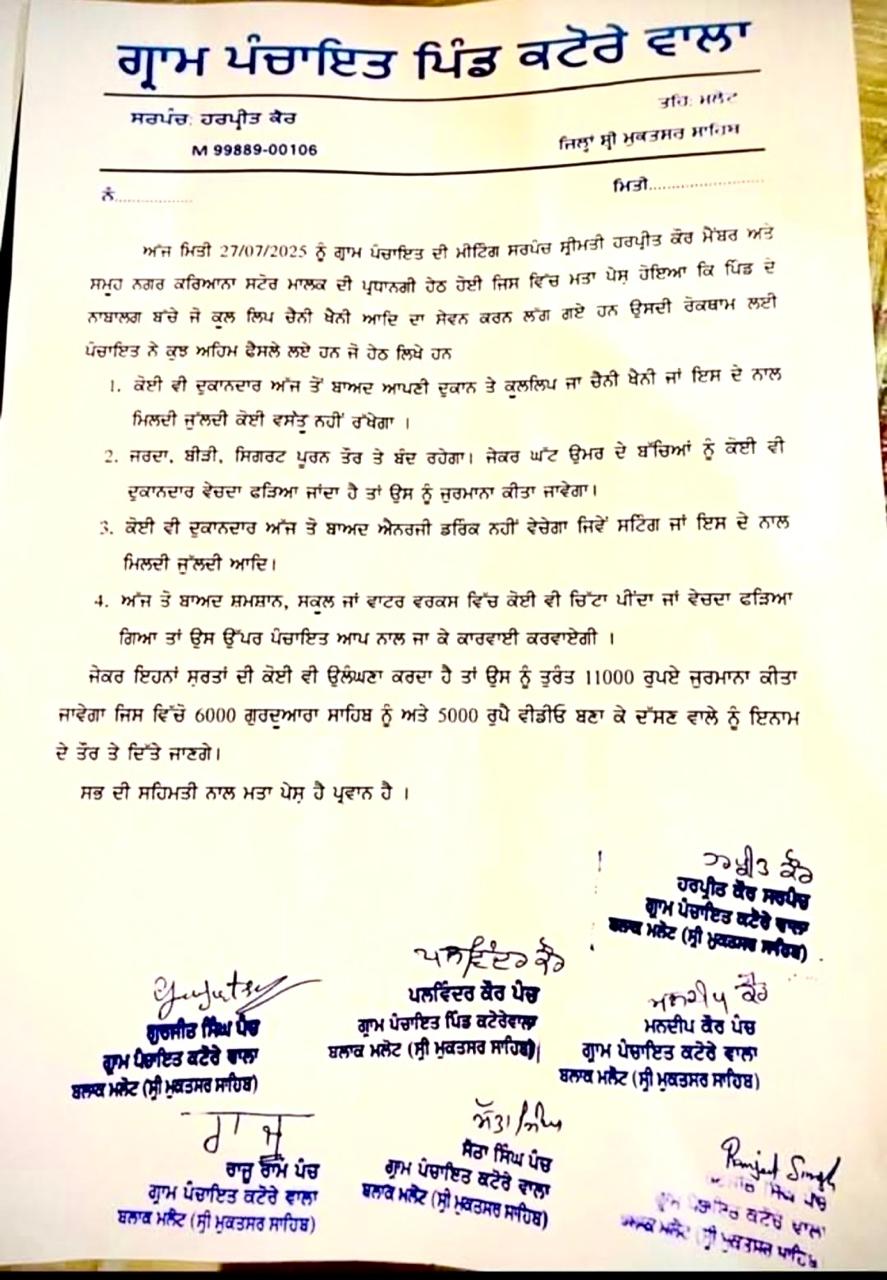 ਗ੍ਰਾਮ ਪੰਚਾਇਤ ਪਿੰਡ ਕਟੋਰੇ ਵਾਲਾ
ਸਰਪੰਚ: ਹਰਪ੍ਰੀਤ ਕੌਰ
ਤਹਿ: ਮਲੋਟ
M 99889-00106
ਜਿਲ੍ਹਾਂ ਸ੍ਰੀ ਮੁਕਤਸਰ ਸਾਹਿਬ
ਨੰ.................
ਮਿਤੀ.........................
ਅੱਜ ਮਿਤੀ 27/07/2025 ਨੂੰ ਗ੍ਰਾਮ ਪੰਚਾਇਤ ਦੀ ਮੀਟਿੰਗ ਸਰਪੰਚ ਸ਼੍ਰੀਮਤੀ ਹਰਪ੍ਰੀਤ ਕੌਰ ਮੈਂਬਰ ਅਤੇ
ਸਮੂਹ ਨਗਰ ਕਰਿਆਨਾ ਸਟੋਰ ਮਾਲਕ ਦੀ ਪ੍ਰਧਾਨਗੀ ਹੇਠ ਹੋਈ ਜਿਸ ਵਿੱਚ ਮਤਾ ਪੇਸ਼ ਹੋਇਆ ਕਿ ਪਿੰਡ ਦੇ
ਨਾਬਾਲਗ ਬੱਚੇ ਜੋ ਕੂਲ ਲਿਪ ਚੈਨੀ ਖੈਨੀ ਆਦਿ ਦਾ ਸੇਵਨ ਕਰਨ ਲੱਗ ਗਏ ਹਨ ਉਸਦੀ ਰੋਕਥਾਮ ਲਈ
ਪੰਚਾਇਤ ਨੇ ਕੁਝ ਅਹਿਮ ਫੈਸਲੇ ਲਏ ਹਨ ਜੋ ਹੇਠ ਲਿਖੇ ਹਨ
1. ਕੋਈ ਵੀ ਦੁਕਾਨਦਾਰ ਅੱਜ ਤੋਂ ਬਾਅਦ ਆਪਣੀ ਦੁਕਾਨ ਤੇ ਕੂਲਲਿਪ ਜਾ ਚੈਨੀ ਖੈਨੀ ਜਾਂ ਇਸ ਦੇ ਨਾਲ
ਮਿਲਦੀ ਜੁੱਲਦੀ ਕੋਈ ਵਸਤੂ ਨਹੀਂ ਰੱਖੇਗਾ ।
2. ਜਰਦਾ, ਬੀੜੀ, ਸਿਗਰਟ ਪੂਰਨ ਤੌਰ ਤੇ ਬੰਦ ਰਹੇਗਾ। ਜੇਕਰ ਘੱਟ ਉਮਰ ਦੇ ਬੱਚਿਆਂ ਨੂੰ ਕੋਈ ਵੀ
ਦੁਕਾਨਦਾਰ ਵੇਚਦਾ ਫੜਿਆ ਜਾਂਦਾ ਹੈ ਤਾਂ ਉਸ ਨੂੰ ਜੁਰਮਾਨਾ ਕੀਤਾ ਜਾਵੇਗਾ।
3. ਕੋਈ ਵੀ ਦੁਕਾਨਦਾਰ ਅੱਜ ਤੋ ਬਾਅਦ ਐਨਰਜੀ ਡਰਿੰਕ ਨਹੀਂ ਵੇਚੇਗਾ ਜਿਵੇਂ ਸਟਿੰਗ ਜਾਂ ਇਸ ਦੇ ਨਾਲ
ਮਿਲਦੀ ਜੁੱਲਦੀ ਆਦਿ।
4. ਅੱਜ ਤੋ ਬਾਅਦ ਸ਼ਮਸ਼ਾਨ, ਸਕੂਲ ਜਾਂ ਵਾਟਰ ਵਰਕਸ ਵਿੱਚ ਕੋਈ ਵੀ ਚਿੱਟਾ ਪੀਂਦਾ ਜਾਂ ਵੇਚਦਾ ਫੜਿਆ
ਗਿਆ ਤਾਂ ਉਸ ਉੱਪਰ ਪੰਚਾਇਤ ਆਪ ਨਾਲ ਜਾ ਕੇ ਕਾਰਵਾਈ ਕਰਵਾਏਗੀ ।
ਜੇਕਰ ਇਹਨਾਂ ਸ਼ਰਤਾਂ ਦੀ ਕੋਈ ਵੀ ਉਲੰਘਣਾ ਕਰਦਾ ਹੈ ਤਾਂ ਉਸ ਨੂੰ ਤੁਰੰਤ 11000 ਰੁਪਏ ਜੁਰਮਾਨਾ ਕੀਤਾ
ਜਾਵੇਗਾ ਜਿਸ ਵਿੱਚੋ 6000 ਗੁਰਦੂਆਰਾ ਸਾਹਿਬ ਨੂੰ ਅਤੇ 5000 ਰੁਪੈ ਵੀਡੀਓ ਬਣਾ ਕੇ ਦੱਸਣ ਵਾਲੇ ਨੂੰ ਇਨਾਮ
ਦੇ ਤੌਰ ਤੇ ਦਿੱਤੇ ਜਾਣਗੇ।
ਸਭ ਦੀ ਸਹਿਮਤੀ ਨਾਲ ਮਤਾ ਪੇਸ਼ ਹੈ ਪ੍ਰਵਾਨ ਹੈ ।
ਹਰਪ੍ਰੀਤ ਕੌਰ
ਹਰਪ੍ਰੀਤ ਕੌਰ ਸਰਪੰਚ
ਗ੍ਰਾਮ ਪੰਚਾਇਤ ਕਟੋਰੇ ਵਾਲਾ
ਬਲਾਕ ਮਲੋਟ (ਸ੍ਰੀ ਮੁਕਤਸਰ ਸਾਹਿਬ)
ਗੁਰਜੀਤ ਸਿੰਘ ਪੰਚ
ਗ੍ਰਾਮ ਪੰਚਾਇਤ ਕਟੋਰੇ ਵਾਲਾ
ਬਲਾਕ ਮਲੋਟ (ਸ੍ਰੀ ਮੁਕਤਸਰ ਸਾਹਿਬ)
ਪਲਵਿੰਦਰ ਕੌਰ
ਪਲਵਿੰਦਰ ਕੌਰ ਪੰਚ
ਗ੍ਰਾਮ ਪੰਚਾਇਤ ਪਿੰਡ ਕਟੋਰੇਵਾਲਾ
ਬਲਾਕ ਮਲੋਟ (ਸ੍ਰੀ ਮੁਕਤਸਰ ਸਾਹਿਬ)
ਮਨਦੀਪ ਕੌਰ
ਮਨਦੀਪ ਕੌਰ ਪੰਚ
ਗ੍ਰਾਮ ਪੰਚਾਇਤ ਕਟੋਰੇ ਵਾਲਾ
ਬਲਾਕ ਮਲੋਟ (ਸ੍ਰੀ ਮੁਕਤਸਰ ਸਾਹਿਬ)
ਰਾਜੂ
ਰਾਜੂ ਰਾਮ ਪੰਚ
ਗ੍ਰਾਮ ਪੰਚਾਇਤ ਕਟੋਰੇ ਵਾਲਾ
ਬਲਾਕ ਮਲੋਟ (ਸ੍ਰੀ ਮੁਕਤਸਰ ਸਾਹਿਬ)
ਸਿੰਘ ਪੰਚ
ਗ੍ਰਾਮ ਪੰਚਾਇਤ ਕਟੋਰੇ ਵਾਲਾ
ਬਲਾਕ ਮਲੋਟ (ਸ੍ਰੀ ਮੁਕਤਸਰ ਸਾਹਿਬ)
Ranjeet Singh
ਸਿੰਘ ਪੰਚ
ਗ੍ਰਾਮ ਪੰਚਾਇਤ ਕਟੋਰੇ ਵਾਲਾ
ਬਲਾਕ ਮਲੋਟ (ਸ੍ਰੀ ਮੁਕਤਸਰ ਸਾਹਿਬ)